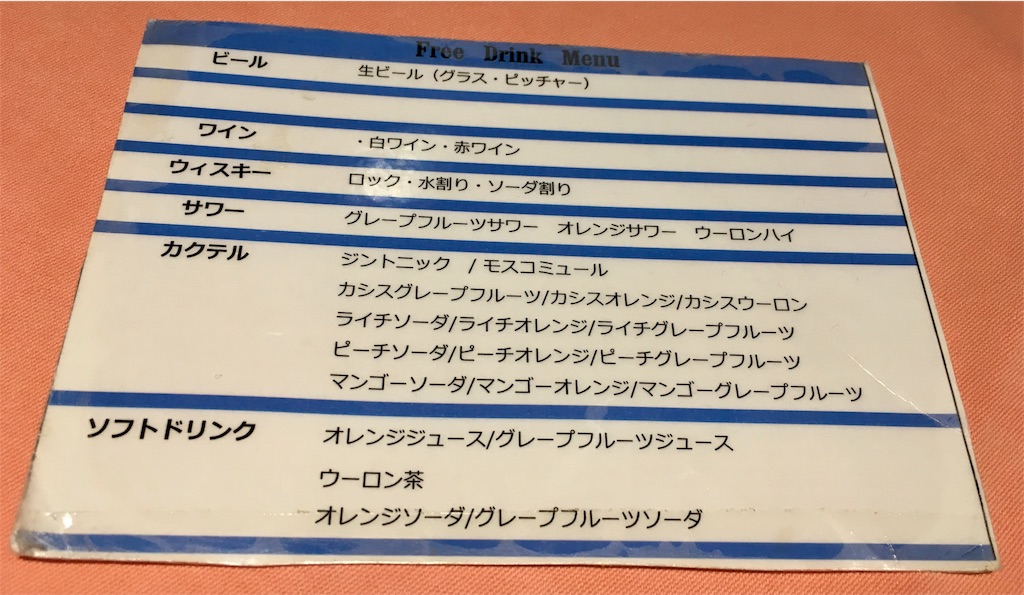 Free Drink Menu
ビール 生ビール（グラス・ピッチャー）
ワイン ・白ワイン・赤ワイン
ウィスキー ロック・水割り・ソーダ割り
サワー グレープフルーツサワー　オレンジサワー　ウーロンハイ
カクテル ジントニック　/ モスコミュール
カシスグレープフルーツ/カシスオレンジ/カシスウーロン
ライチソーダ/ライチオレンジ/ライチグレープフルーツ
ピーチソーダ/ピーチオレンジ/ピーチグレープフルーツ
マンゴーソーダ/マンゴーオレンジ/マンゴーグレープフルーツ
ソフトドリンク オレンジジュース/グレープフルーツジュース
ウーロン茶
オレンジソーダ/グレープフルーツソーダ